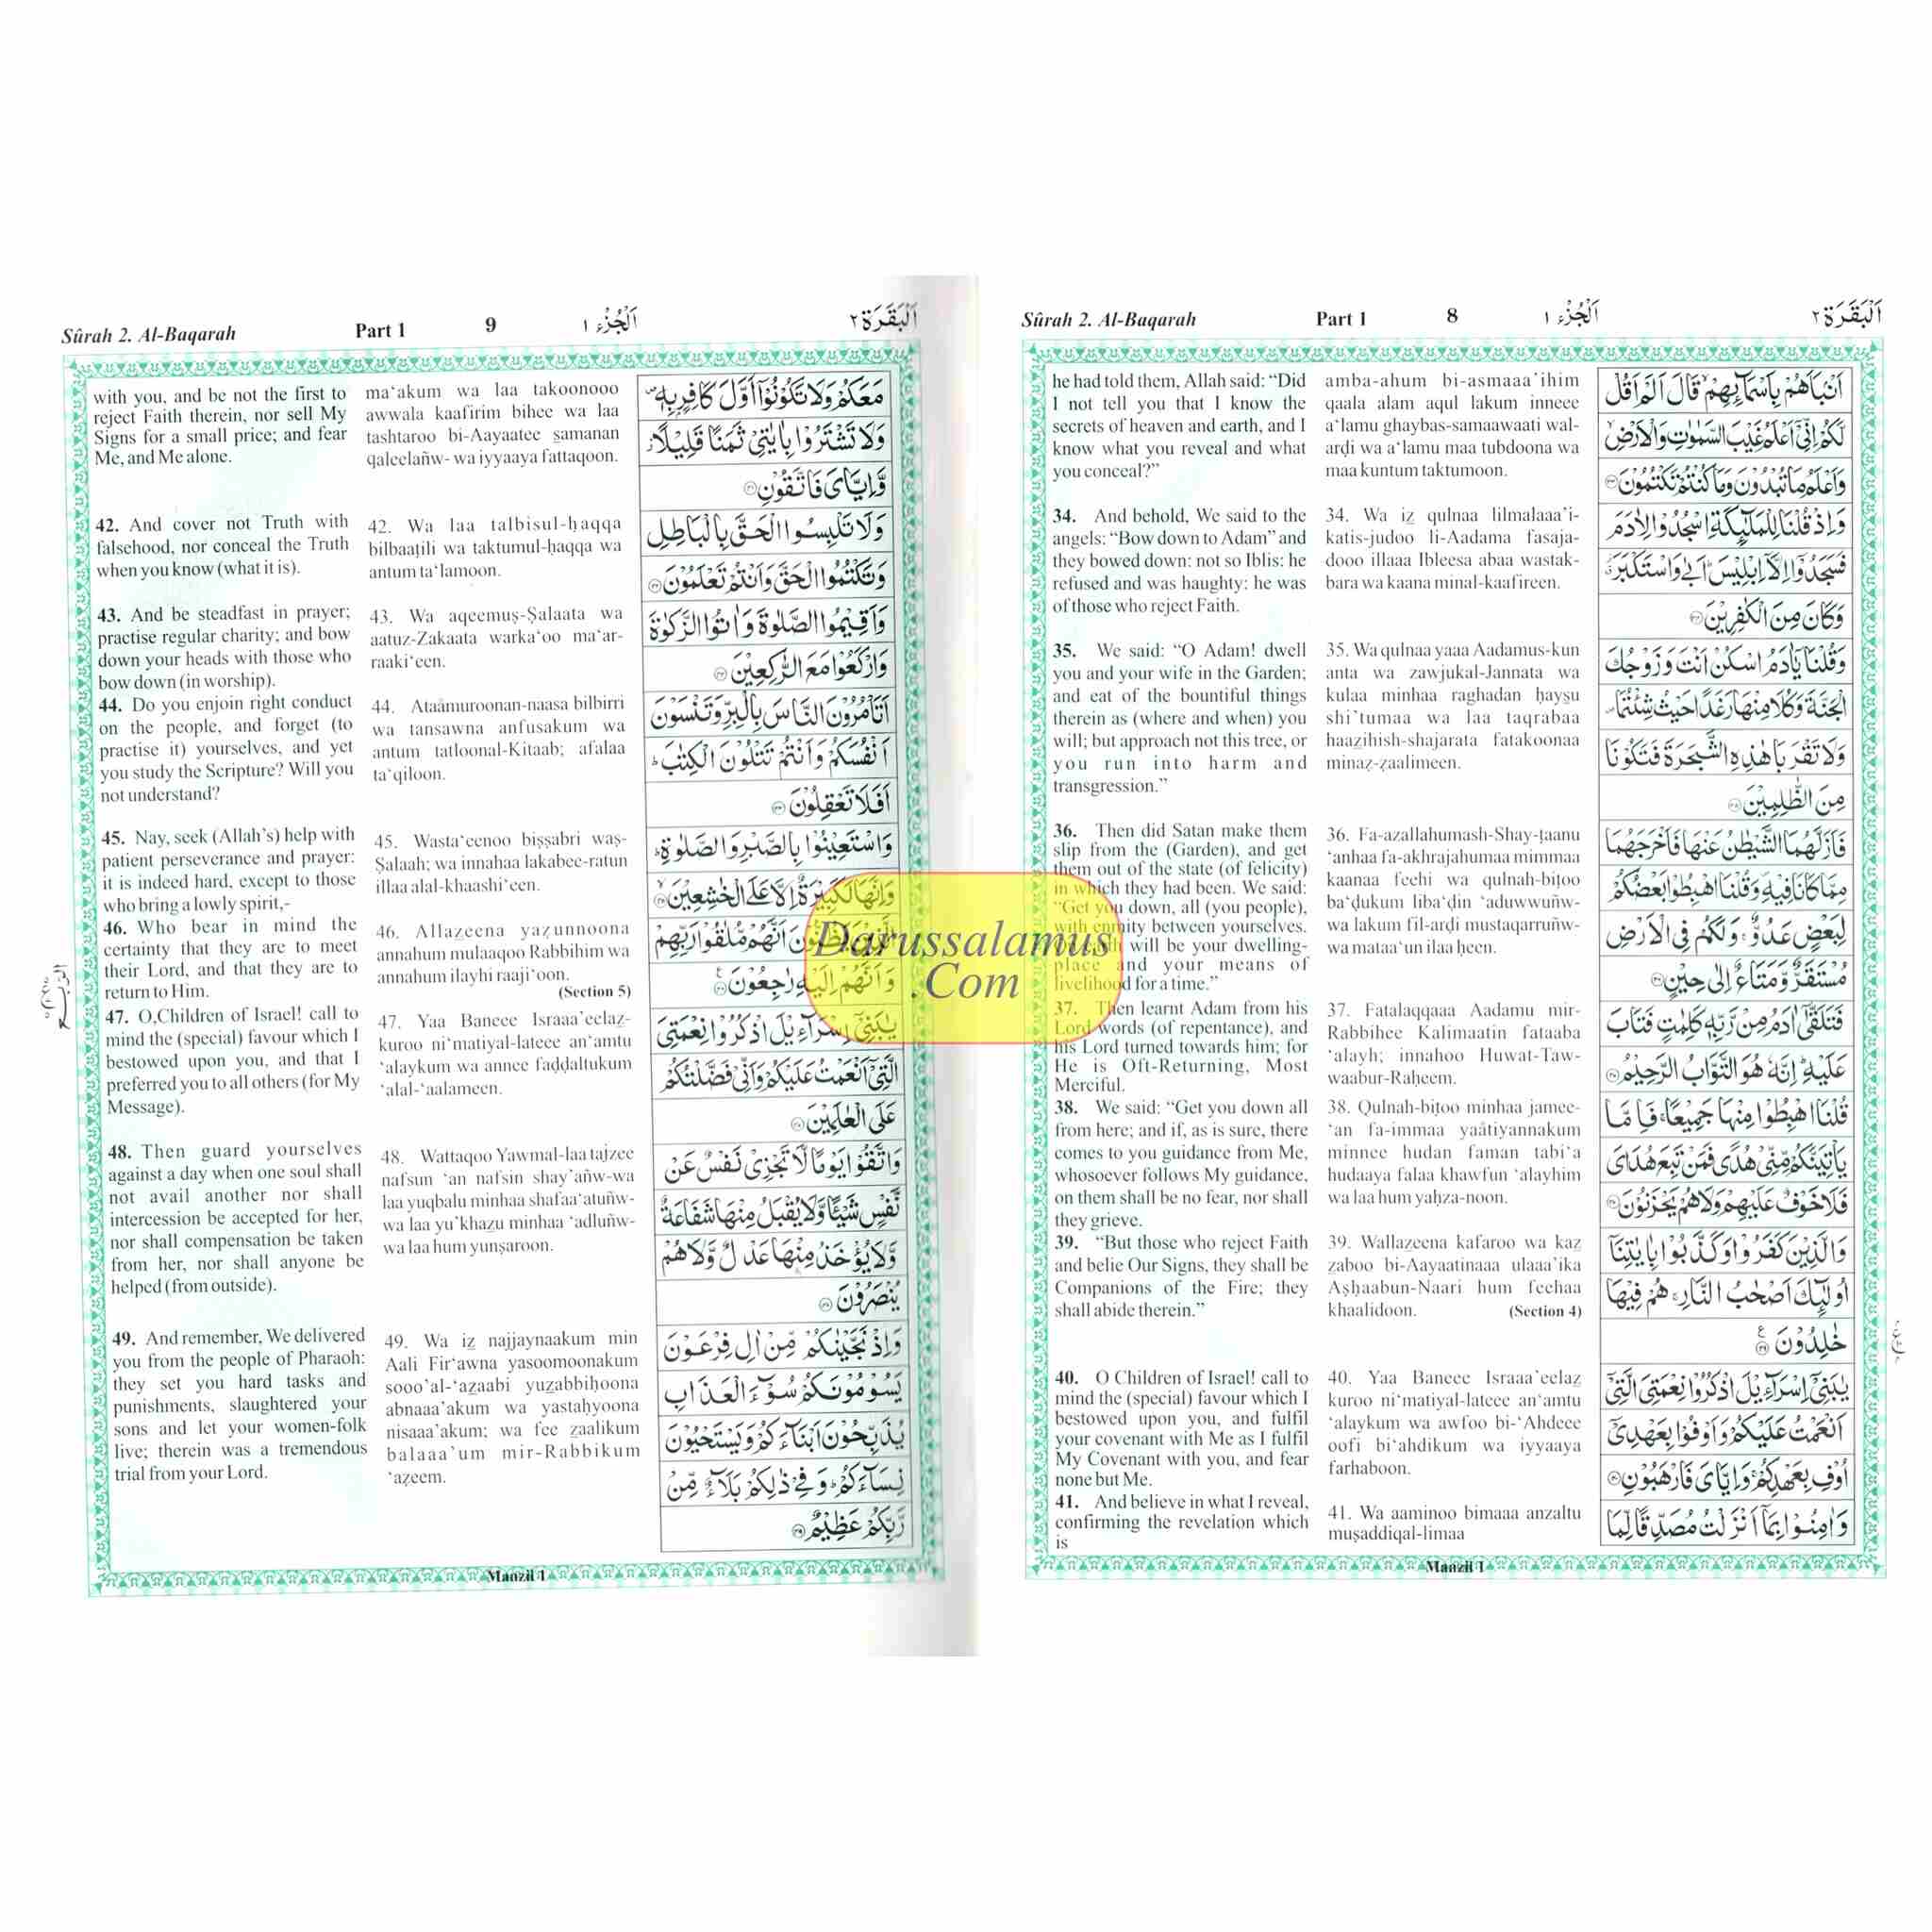 Sûrah 2. Al-Baqarah Part 1 8 اَلْجُزْء ١ اَلْبَقَرَة ٢
he had told them, Allah said: “Did
I not tell you that I know the
secrets of heaven and earth, and I
know what you reveal and what
you conceal?”
34. And behold, We said to the
angels: “Bow down to Adam” and
they bowed down: not so Iblis: he
refused and was haughty: he was
of those who reject Faith.
35. We said: “O Adam! dwell
you and your wife in the Garden;
and eat of the bountiful things
therein as (where and when) you
will; but approach not this tree, or
you run into harm and
transgression.”
36. Then did Satan make them
slip from the (Garden), and get
them out of the state (of felicity)
in which they had been. We said:
“Get you down, all (you people),
with enmity between yourselves.
will be your dwelling-
place and your means of
livelihood for a time.”
37. Then learnt Adam from his
Lord words (of repentance), and
his Lord turned towards him; for
He is Oft-Returning, Most
Merciful.
38. We said: “Get you down all
from here; and if, as is sure, there
comes to you guidance from Me,
whosoever follows My guidance,
on them shall be no fear, nor shall
they grieve.
39. “But those who reject Faith
and belie Our Signs, they shall be
Companions of the Fire; they
shall abide therein.”
40. O Children of Israel! call to
mind the (special) favour which I
bestowed upon you, and fulfil
your covenant with Me as I fulfil
My Covenant with you, and fear
none but Me.
41. And believe in what I reveal,
confirming the revelation which
is
amba-ahum bi-asmaaa’ihim
qaala alam aqul lakum inneee
a‘lamu ghaybas-samaawaati wal-
arḍi wa a‘lamu maa tubdoona wa
maa kuntum taktumoon.
34. Wa iz qulnaa lilmalaaa’i-
katis-judoo li-Aadama fasaja-
dooo illaaa Ibleesa abaa wastak-
bara wa kaana minal-kaafireen.
35. Wa qulnaa yaaa Aadamus-kun
anta wa zawjukal-Jannata wa
kulaa minhaa raghadan ḥaysu
shi’tumaa wa laa taqrabaa
haazihish-shajarata fatakoonaa
minaz-zaalimeen.
36. Fa-azallahumash-Shay-ṭaanu
‘anhaa fa-akhrajahumaa mimmaa
kaanaa feehi wa qulnah-biṭoo
ba‘ḍukum liba‘ḍin ‘aduwwuñw-
wa lakum fil-arḍi mustaqarruñw-
wa mataa‘un ilaa ḥeen.
37. Fatalaqqaaa Aadamu mir-
Rabbihee Kalimaatin fataaba
‘alayh; innahoo Huwat-Taw-
waabur-Raḥeem.
38. Qulnah-biṭoo minhaa jamee-
‘an fa-immaa yaåtiyannakum
minnee hudan faman tabi‘a
hudaaya falaa khawfun ‘alayhim
wa laa hum yaḥza-noon.
39. Wallazeena kafaroo wa kaz
zaboo bi-Aayaatinaaa ulaaa’ika
Aṣḥaabun-Naari hum feehaa
khaalidoon. (Section 4)
40. Yaa Baneee Israaa’eelaz
kuroo ni‘matiyal-lateee an‘amtu
‘alaykum wa awfoo bi-‘Ahdeee
oofi bi‘ahdikum wa iyyaaya
farhaboon.
41. Wa aaminoo bimaaa anzaltu
muṣaddiqal-limaa
اَنْۢبَاَهُمْ بِاَسْمَآئِهِمْ ۙ قَالَ اَلَمْ اَقُلْ
لَّكُمْ اِنِّيْٓ اَعْلَمُ غَيْبَ السَّمٰوٰتِ وَالْاَرْضِ ۙ
وَاَعْلَمُ مَا تُبْدُوْنَ وَمَا كُنْتُمْ تَكْتُمُوْنَ ۝٣٣
وَاِذْ قُلْنَا لِلْمَلٰٓئِكَةِ اسْجُدُوْا لِاٰدَمَ
فَسَجَدُوْٓا اِلَّآ اِبْلِيْسَ ؕ اَبٰى وَاسْتَكْبَرَ ۗ
وَكَانَ مِنَ الْكٰفِرِيْنَ ۝٣٤
وَقُلْنَا يٰٓاٰدَمُ اسْكُنْ اَنْتَ وَزَوْجُكَ
الْجَنَّةَ وَكُلَا مِنْهَا رَغَدًا حَيْثُ شِئْتُمَا ۪
وَلَا تَقْرَبَا هٰذِهِ الشَّجَرَةَ فَتَكُوْنَا
مِنَ الظّٰلِمِيْنَ ۝٣٥
فَاَزَلَّهُمَا الشَّيْطٰنُ عَنْهَا فَاَخْرَجَهُمَا
مِمَّا كَانَا فِيْهِ ۪ وَقُلْنَا اهْبِطُوْا بَعْضُكُمْ
لِبَعْضٍ عَدُوٌّ ۚ وَلَكُمْ فِي الْاَرْضِ
مُسْتَقَرٌّ وَّمَتَاعٌ اِلٰى حِيْنٍ ۝٣٦
فَتَلَقّٰٓى اٰدَمُ مِنْ رَّبِّهٖ كَلِمٰتٍ فَتَابَ
عَلَيْهِ ؕ اِنَّهٗ هُوَ التَّوَّابُ الرَّحِيْمُ ۝٣٧
قُلْنَا اهْبِطُوْا مِنْهَا جَمِيْعًا ۚ فَاِمَّا
يَاْتِيَنَّكُمْ مِّنِّيْ هُدًى فَمَنْ تَبِعَ هُدَايَ
فَلَا خَوْفٌ عَلَيْهِمْ وَلَا هُمْ يَحْزَنُوْنَ ۝٣٨
وَالَّذِيْنَ كَفَرُوْا وَكَذَّبُوْا بِاٰيٰتِنَآ
اُولٰٓئِكَ اَصْحٰبُ النَّارِ ۚ هُمْ فِيْهَا
خٰلِدُوْنَ ۝٣٩ ع
يٰبَنِيْٓ اِسْرَآءِيْلَ اذْكُرُوْا نِعْمَتِيَ الَّتِيْٓ
اَنْعَمْتُ عَلَيْكُمْ وَاَوْفُوْا بِعَهْدِيْٓ
اُوْفِ بِعَهْدِكُمْ ۚ وَاِيَّايَ فَارْهَبُوْنِ ۝٤٠
وَاٰمِنُوْا بِمَآ اَنْزَلْتُ مُصَدِّقًا لِّمَا
Manzil 1
Sûrah 2. Al-Baqarah Part 1 9 اَلْجُزْء ١ اَلْبَقَرَة ٢
with you, and be not the first to
reject Faith therein, nor sell My
Signs for a small price; and fear
Me, and Me alone.
42. And cover not Truth with
falsehood, nor conceal the Truth
when you know (what it is).
43. And be steadfast in prayer;
practise regular charity; and bow
down your heads with those who
bow down (in worship).
44. Do you enjoin right conduct
on the people, and forget (to
practise it) yourselves, and yet
you study the Scripture? Will you
not understand?
45. Nay, seek (Allah’s) help with
patient perseverance and prayer:
it is indeed hard, except to those
who bring a lowly spirit,-
46. Who bear in mind the
certainty that they are to meet
their Lord, and that they are to
return to Him.
47. O,Children of Israel! call to
mind the (special) favour which I
bestowed upon you, and that I
preferred you to all others (for My
Message).
48. Then guard yourselves
against a day when one soul shall
not avail another nor shall
intercession be accepted for her,
nor shall compensation be taken
from her, nor shall anyone be
helped (from outside).
49. And remember, We delivered
you from the people of Pharaoh:
they set you hard tasks and
punishments, slaughtered your
sons and let your women-folk
live; therein was a tremendous
trial from your Lord.
ma‘akum wa laa takoonooo
awwala kaafirim bihee wa laa
tashtaroo bi-Aayaatee samanan
qaleelañw- wa iyyaaya fattaqoon.
42. Wa laa talbisul-ḥaqqa
bilbaaṭili wa taktumul-ḥaqqa wa
antum ta‘lamoon.
43. Wa aqeemuṣ-Ṣalaata wa
aatuz-Zakaata warka‘oo ma‘ar-
raaki‘een.
44. Ataåmuroonan-naasa bilbirri
wa tansawna anfusakum wa
antum tatloonal-Kitaab; afalaa
ta‘qiloon.
45. Wasta‘eenoo biṣṣabri waṣ-
Ṣalaah; wa innahaa lakabee-ratun
illaa alal-khaashi‘een.
46. Allazeena yaẓunnoona
annahum mulaaqoo Rabbihim wa
annahum ilayhi raaji‘oon.
(Section 5)
47. Yaa Baneee Israaa’eelaz-
kuroo ni‘matiyal-lateee an‘amtu
‘alaykum wa annee faḍḍaltukum
‘alal-‘aalameen.
48. Wattaqoo Yawmal-laa tajzee
nafsun ‘an nafsin shay’añw-wa
laa yuqbalu minhaa shafaa‘atuñw-
wa laa yu’khazu minhaa ‘adluñw-
wa laa hum yunṣaroon.
49. Wa iz najjaynaakum min
Aali Fir‘awna yasoomoonakum
sooo’al-‘azaabi yuzabbiḥoona
abnaaa’akum wa yastaḥyoona
nisaaa’akum; wa fee zaalikum
balaaa’um mir-Rabbikum
‘aẓeem.
مَعَكُمْ وَلَا تَكُوْنُوْٓا اَوَّلَ كَافِرٍۢ بِهٖ ۪
وَلَا تَشْتَرُوْا بِاٰيٰتِيْ ثَمَنًا قَلِيْلًا ۡ
وَّاِيَّايَ فَاتَّقُوْنِ ۝٤١
وَلَا تَلْبِسُوا الْحَقَّ بِالْبَاطِلِ
وَتَكْتُمُوا الْحَقَّ وَاَنْتُمْ تَعْلَمُوْنَ ۝٤٢
وَاَقِيْمُوا الصَّلٰوةَ وَاٰتُوا الزَّكٰوةَ
وَارْكَعُوْا مَعَ الرّٰكِعِيْنَ ۝٤٣
اَتَاْمُرُوْنَ النَّاسَ بِالْبِرِّ وَتَنْسَوْنَ
اَنْفُسَكُمْ وَاَنْتُمْ تَتْلُوْنَ الْكِتٰبَ ؕ
اَفَلَا تَعْقِلُوْنَ ۝٤٤
وَاسْتَعِيْنُوْا بِالصَّبْرِ وَالصَّلٰوةِ ؕ
وَاِنَّهَا لَكَبِيْرَةٌ اِلَّا عَلَى الْخٰشِعِيْنَ ۝٤٥
يَظُنُّوْنَ اَنَّهُمْ مُّلٰقُوْا رَبِّهِمْ
وَاَنَّهُمْ اِلَيْهِ رٰجِعُوْنَ ۝٤٦ ع
يٰبَنِيْٓ اِسْرَآءِيْلَ اذْكُرُوْا نِعْمَتِيَ
الَّتِيْٓ اَنْعَمْتُ عَلَيْكُمْ وَاَنِّيْ فَضَّلْتُكُمْ
عَلَى الْعٰلَمِيْنَ ۝٤٧
وَاتَّقُوْا يَوْمًا لَّا تَجْزِيْ نَفْسٌ عَنْ
نَّفْسٍ شَيْئًا وَّلَا يُقْبَلُ مِنْهَا شَفَاعَةٌ
وَّلَا يُؤْخَذُ مِنْهَا عَدْلٌ وَّلَا هُمْ
يُنْصَرُوْنَ ۝٤٨
وَاِذْ نَجَّيْنٰكُمْ مِّنْ اٰلِ فِرْعَوْنَ
يَسُوْمُوْنَكُمْ سُوْٓءَ الْعَذَابِ
يُذَبِّحُوْنَ اَبْنَآءَكُمْ وَيَسْتَحْيُوْنَ
نِسَآءَكُمْ ؕ وَفِيْ ذٰلِكُمْ بَلَآءٌ مِّنْ
رَّبِّكُمْ عَظِيْمٌ ۝٤٩
Manzil 1
Darussalamus
.Com